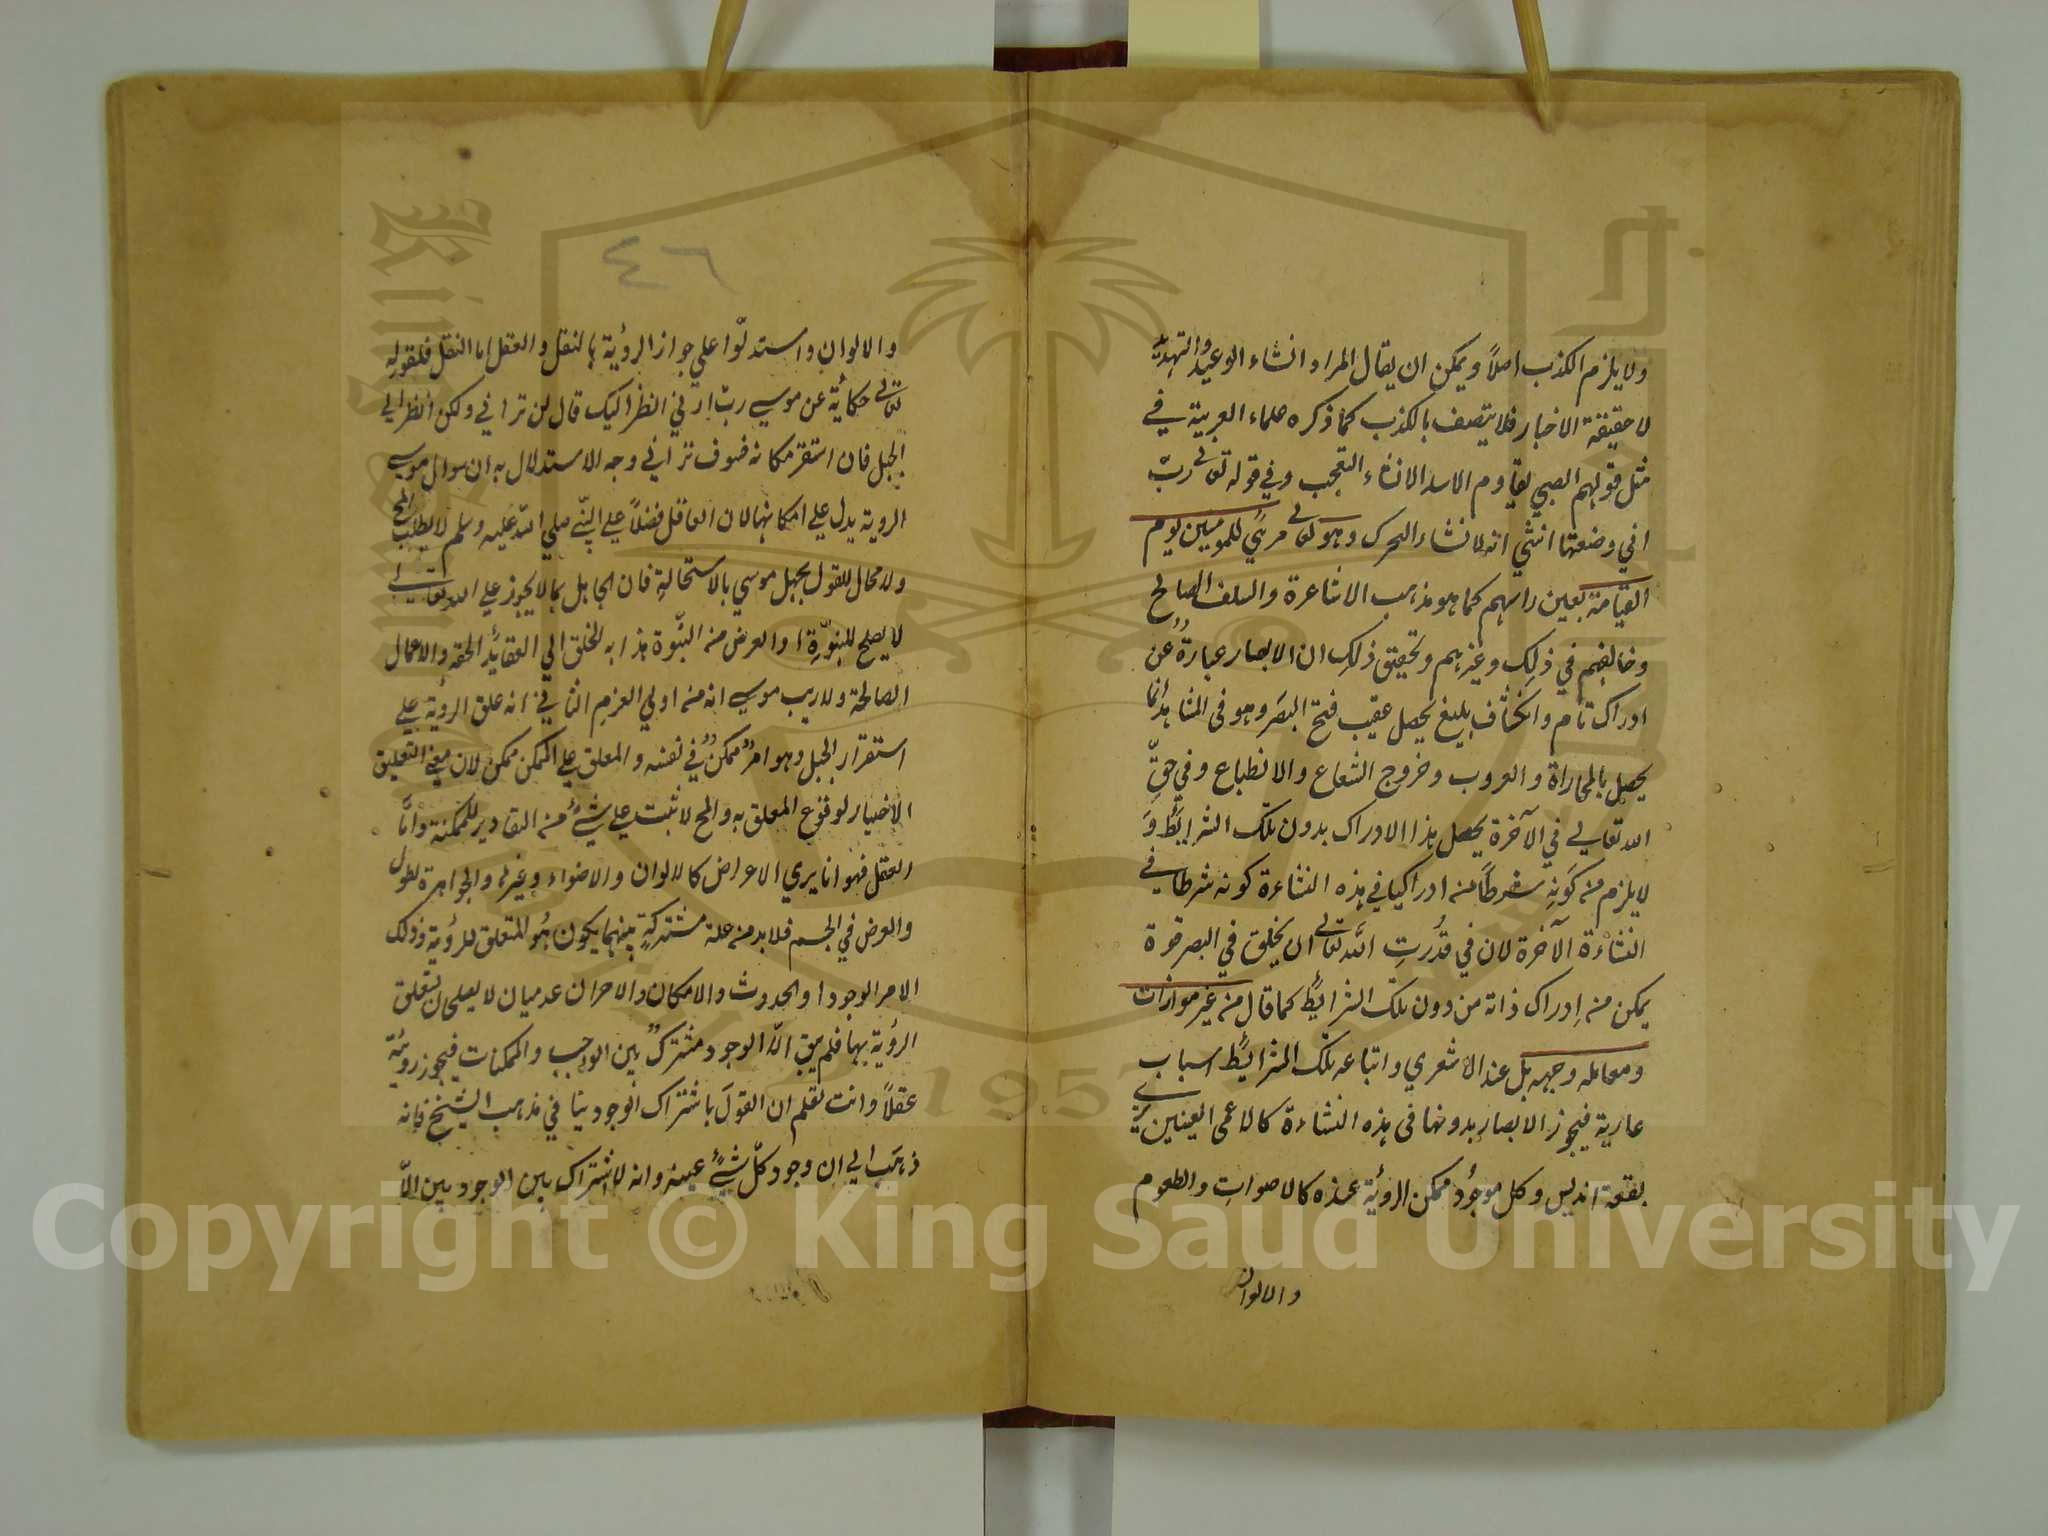 ولا يلزم الكذب اصلاً ويمكن ان يقال المراد انشاء الوعيد والتهديد
لا حقيقة الاخبار فلا يتصف بالكذب كما ذكره علماء العربية في
مثل قولهم الصبي يقاوم الاسد الا انشاء التعجب وفي قوله تعالى ربّ
اني وضعتها انثي انه لانشاء التحرك وهو تعالى مرئي للمومنين يوم
القيامة بعين راسهم كما هو مذهب الاشاعرة والسلف الصالح
وخالفهم في ذلك وغيرهم وتحقيق ذلك ان الابصار عبارة عن
ادراك تام وانكشاف بليغ يحصل عقيب فتح البصر وهو في المشاهد انما
يحصل بالمحاراة و العروب وخروج الشعاع والانطباع وفي حقّ
الله تعالي في الآخرة يحصل هذا الادراك بدون تلك الشرايط و
لا يلزم من كونه شرطا من ادراكيا في هذه النشاءة كونه شرطا في
النشاءة الآخرة لان في قدرت الله تعالى ان يخلق في البصر قوة
يمكن من ادراك ذاته من دون تلك الشرايط كما قال من غير موازات
ومعامله وجهه بل عند الاشعري واتباعه تلك الشرايط اسباب
عارية فيجوز الابصار بدونها في هذه النشاءة كالاعمى العينين يرى
بقعة اندلس وكل موجود ممكن الروئية عنده كالاصوات والطعوم
والالوان
٤٦
والالوان واستدلّوا علي جواز الرؤية بالنقل والعقل اما النقل فلقوله
تعالى حكائة عن موسي ربّ ارني انظر اليك قال لن تراني ولكن انظر الي
الجبل فان استقر مكانه فسوف تراني وجه الاستدلال به ان سوال موسي
الروية يدل علي امكانها لان العاقل فضلاً علي النّبي صلي الله عليه وسلم لا يطلب المح
ولا مجال للقول بجهل موسي بالاستحالة فان الجاهل بما لا يجوز علي الله تعالي
لا يصلح للنبوّة اذ الغرض من النّبوة هذابه الخلق الي العقائد الحقه والاعمال
الصالحة ولا ريب موسي انه من اولي العزم الثاني انه علق الروية علي
استقرار الجبل وهو امر ممكن في نفسه والمعلق علي الممكن ممكن لان معني التعليق
الاخبار لوقوع المعلق به والمح لا تثبت علي شيء من التقادير للممكنة واما
العقل فهو انا يري الاعراض كالالوان والاضواء وغيرها والجواهرة لطول
والعرض في الجسم فلا بد من علة مشتركة بينهما يكون هو المتعلق للرؤية وذلك
الامر الوجود او الحدوث والامكان والاخران عدميان لا يصلحان تعلق
الرؤية بهما فلم يبق الّا الوجود مشترك بين الواجب والممكنات فيجوز روئية
عقلاً وانت تعلم ان القول باشتراك الوجود ينا في مذهب الشيخ فانه
ذهب الي ان وجود كلّ شيء عينه وانه لا اشتراك بين الوجود بين الّا
Copyright © King Saud University
1957